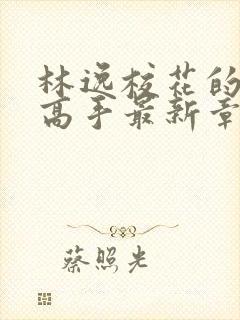 林逸校花的
高手最新章
蔡照光